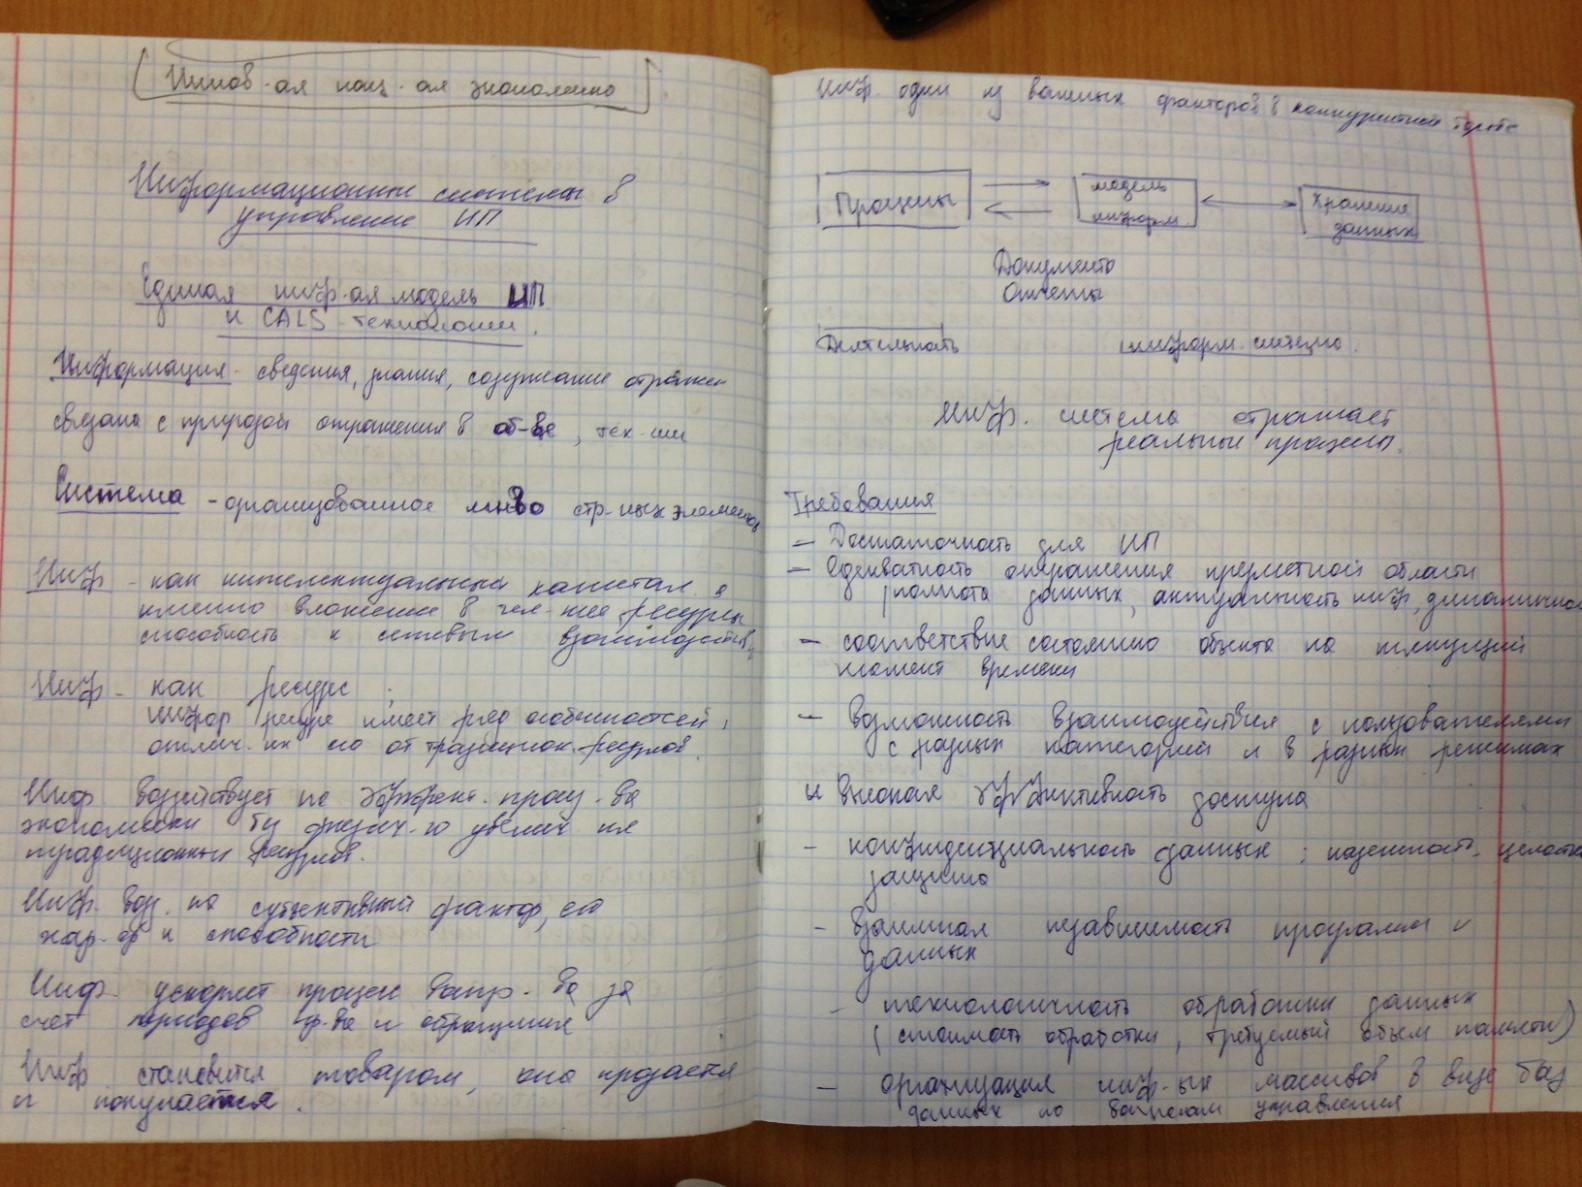 Иннов-ая нац-ая экономика
Информационные системы в
управление ИП
Единая инф-ая модель ИП
и CALS-технологии.
Информация - сведения, знания, содержание отражен
связана с природой отражения в об-ве, тех-ии
Система - организованное мн-во стр-ных элементов
Инф - как интелектуальный капитал, а
именно вложение в чел-кие ресурсы
способность к сетевым взаимодейств
Инф - как ресурс
инфор ресурс имеет ряд особенностей,
отлич-их его от традицион. ресурсов.
Инф воздействует на эффект. произ-ва
экономически без физич-го увелич-ия
традиционных ресурсов.
Инф. возд. на субъективный фактор, его
хар-ер и способности
Инф. ускоряет процесс воспр-ва за
счет периодов пр-ва и обращения
Инф становится товаром, она продается
и покупается.
Инф. один из важных факторов в конкурентной борьбе
Процессы
модель
информ.
Хранение
данных
Документо
Отчеты
Деятельность
информ. система.
Инф. система отражает
реальные процессы.
Требования
- Достаточность для ИП
- Адекватность отражения предметной области
полнота данных, актуальность инф, динамичность
- соответствие состоянию объекта на текущий
момент времени
- Возможность взаимодействия с пользователями
с разных категорий и в разных режимах
и высокая эффективность доступа
- конфиденциальность данных; надежность, целостн
защита
- Взаимная независимость программ и
данных
- технологичность обработки данных
(стоимость обработки, требуемый объем памяти)
- организация инф-ых массивов в виде баз
данных по вопросам управления